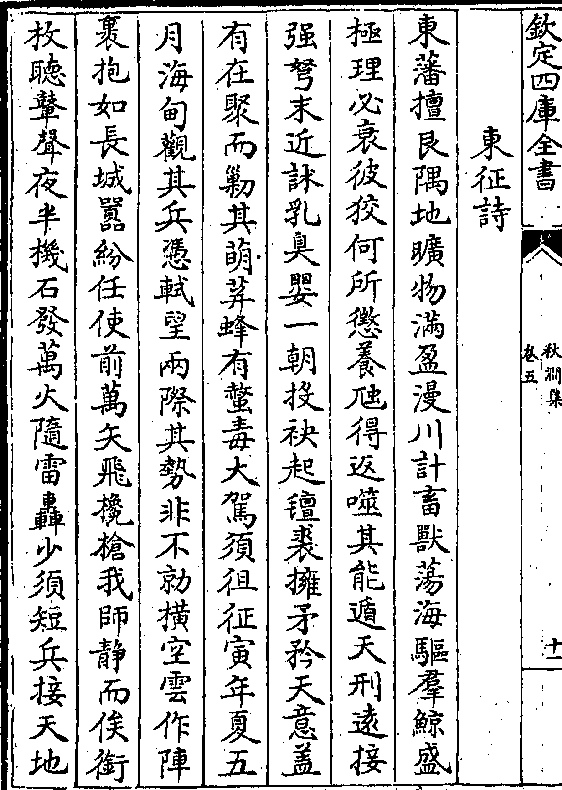 欽定四庫全書
秋澗集
卷五
十一
東征詩
東藩擅艮隅地曠物滿盈漫川計畜獸蕩海驅羣鯨盛
極理必衰彼狡何所懲養虺得返噬其能遁天刑遠接
强弩末近詸乳臭嬰一朝投袂起氊裘擁矛矜天意蓋
有在聚而勦其萌莽蜂有螫毒大駕須徂征寅年夏五
月海甸觀其兵憑軾望兩際其勢非不勍橫空雲作陣
褁抱如長城嚚紛任使前萬矢飛欃槍我師靜而俟銜
枚聽鼙聲夜半機石發萬火隨雷轟少須短兵接天地